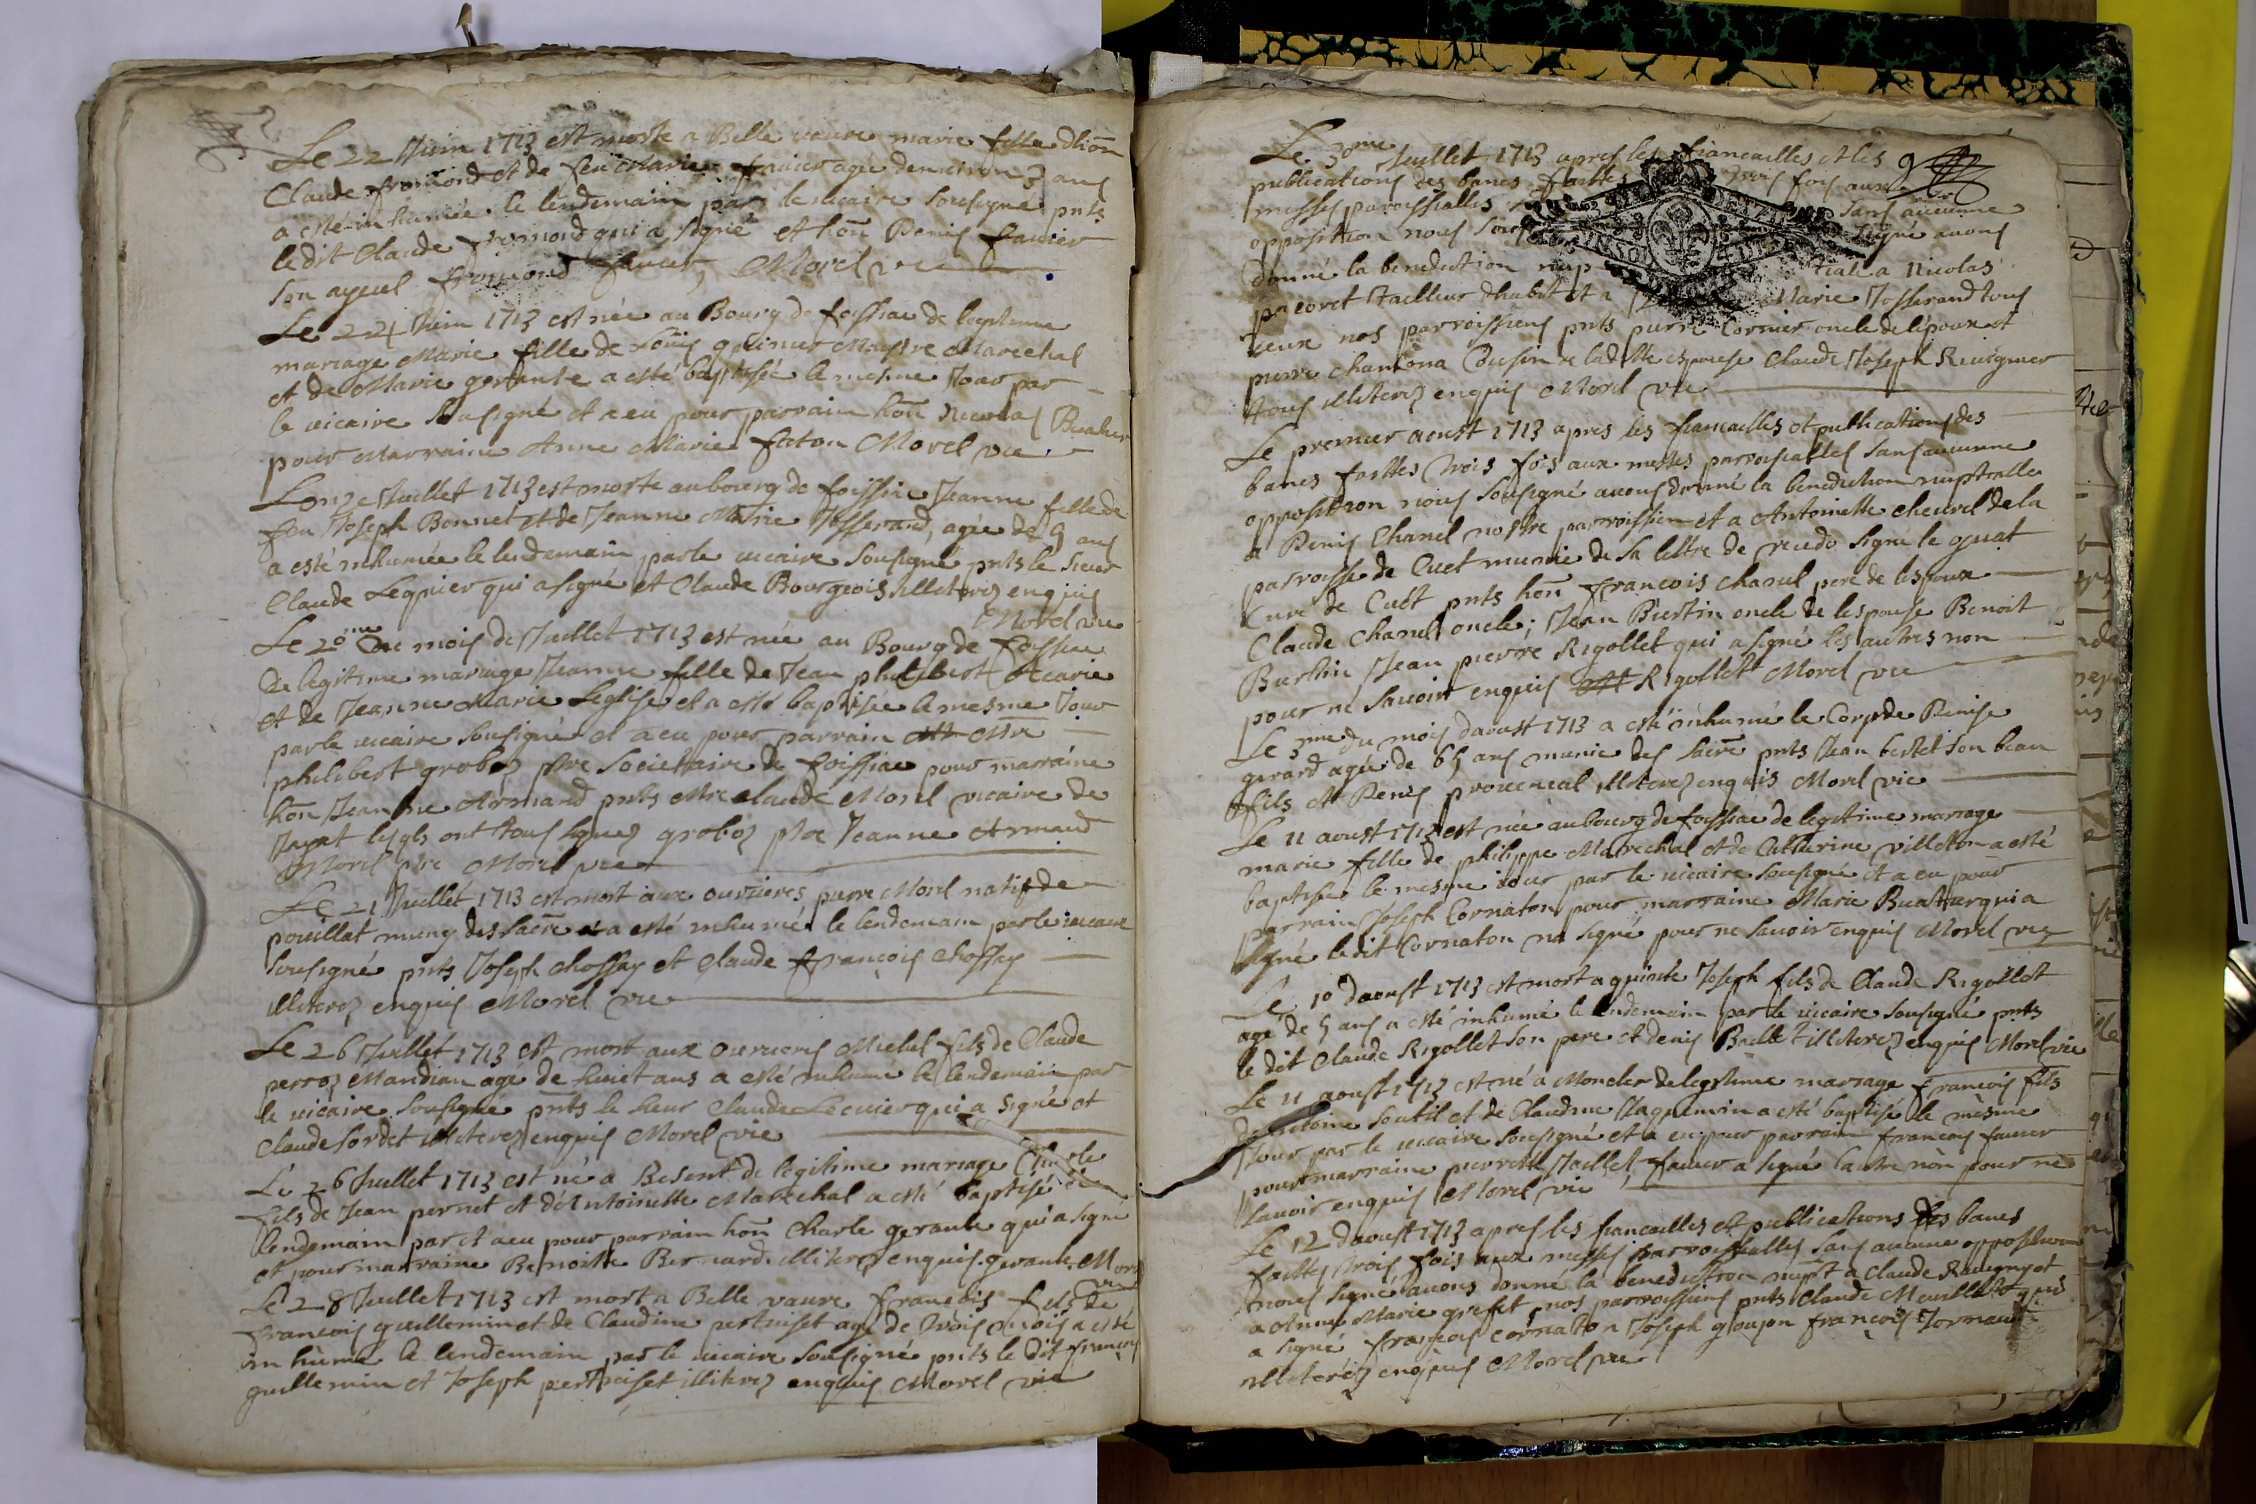 Le 22 Juin 1713 est morte a Belle vavre marie fille dhon
Claude fromond et de feu Marie favier agée denviron 3 ans
a esté inhumée le lendemain par le vicaire sousigné pnts
ledit Claude fromond qui a signé et hon Denis favier
son ayeul fromond favier, Morel vic
Le 24 Juin 1713 est née au Bourg de foissiac de legitime
mariage Marie fille de Louis quimer Maystre Marechal
et de Marie gerante a esté baptisée le mesme Jour par
le vicaire sousigné et a eu pour parrain hon Nicolas
pour Marraine Anne Marie Morel vic
Lonze Juillet 1713 est morte au bourg de foissiac Jeanne fille de
feu Joseph Bonnet et de Jeanne Marie Josserand, agée de 9 ans
a esté inhumée le lendemain par le vicaire sousigné pnts le sieur
Claude Lequier qui a signé et Claude Bourgeois illiterez enquis
Morel vic
Le 20me du mois de Juillet 1713 est née au Bourg de foissiac
de legitime mariage Jeanne fille de Jean philibert
et de Jeanne Marie Leglise et a esté baptisée le mesme Jour
par le vicaire sousigné et a eu pour parrain Mre
philibert groboz pbre Societaire de foissiac pour marraine
hon Jeanne Armand pnts Mre claude Morel vicaire de
Jayat lesqls ont tous signez groboz pbre Jeanne Armand
Morel pbre Morel vic
Le 21 Juillet 1713 est mort aux ouvrieres pierre Morel natif de
pouillat muny des sacre a esté inhumé le lendemain par le vicaire
sousigné pnts Joseph chossay et Claude françois chossay
illiterez enquis Morel vic
Le 26 Juillet 1713 est mort aux ouvrieres Michel fils de Claude
perroz Mandian agé de huict ans a esté inhumé le lendemain par
le vicaire sousigné pnts le sieur Claude Lecuier qui a signé et
Claude sordet illiterez enquis Morel vic
Le 26 Juillet 1713 est né a Besent de legitime mariage Charle
fils de Jean pernet et d'Antoinette Marechal a esté baptisé le
lendemain par et a eu pour parrain hon Charle gerante qui a signé
et pour marraine Benoiste Bernard illiterez enquis. gerante Morel
vic
Le 28 Juillet 1713 est mort a Belle vavre françois fils de
francois guillemin et de Claudine pertuiset agé de trois mois a esté
inhumé le lendemain par le vicaire sousigné pnts le dit françois
guillemin et Joseph pertuiset illiterez enquis Morel vic
Le 30me Juillet 1713 apres les fiancailles et les
publications des bancs faittes trois fois aux
messes paroissialles sans aucune
opposition nous sous signé avons
donné la benediction nup tiale a Nicolas
pacoret tailleur dhabit et a Marie Josserand tous
deux nos parroissiens pnts pierre Cornier oncle de lépoux et
pierre chamona Cousin de laditte espouse Claude Joseph Revignier
tous illiterez enquis Morel vic
Le premier aoust 1713 apres les fiancailles et publications des
bancs faittes trois fois aux messes parroissialles sans aucune
opposition nous sousigné avons donné la benediction nuptialle
a Denis Chanel nostre parroissien et a Antoinette chevrel de la
parroisse de Cuet munie de sa lettre de recedo signe le quat
Curé de Cuet pnts hon francois chanel pere de lespoux
Claude chanel oncle; Jean Burtin oncle de lespouse Benoit
Burtin Jean pierre Rigollet qui a signé les autres non
pour ne savoir enquis Rigollet Morel vic
Le 3me du mois daoust 1713 a esté inhumé le Corps de Denise
gerard agée de 65 ans munie des sacre pnts Jean bertet son beau
fils et Denis provencal illiterez enquis Morel vic
Le 11 aoust 1713 est née au bourg de foissiac de legitime mariage
marie fille de philippe Marechal et de Catherine villeton a esté
baptisée le mesme jour par le vicaire sousigné et a eu pour
parrain Joseph Cornaton pour marraine Marie Buathier qui a
signé ledit Cornaton na signé pour ne savoir enquis Morel vic
Le 10 daoust 1713 est mort a quinte Joseph fils de Claude Rigollet
agé de 5 ans a esté inhumé le lendemain par le vicaire sousigné pnts
le dit Claude Rigollet son pere et denis Baillet illiterez enquis Morel vic
Le 11 aoust 1713 est né a Moncler de legitime mariage francois fils
d'Antoine soutil et de Claudine Jaquemin a esté baptisé le mesme
jour par le vicaire sousigné et a eu pour parrain francois favier
pour marraine pierrette Jaillet, favier a signé lautre non pour ne
savoir enquis Morel vic
Le 12 daoust 1713 apres les fiancailles et publications des bancs
faittes trois fois aux messes parroissialles sans aucune opposition
nous signé avons donné la benediction nupt a Claude Ravignyot
a Anne Marie grefet nos parroissiens pnts Claude Meuillet qui
a signé françois cornaton Joseph goujon francois
illiterez enquis Morel vic